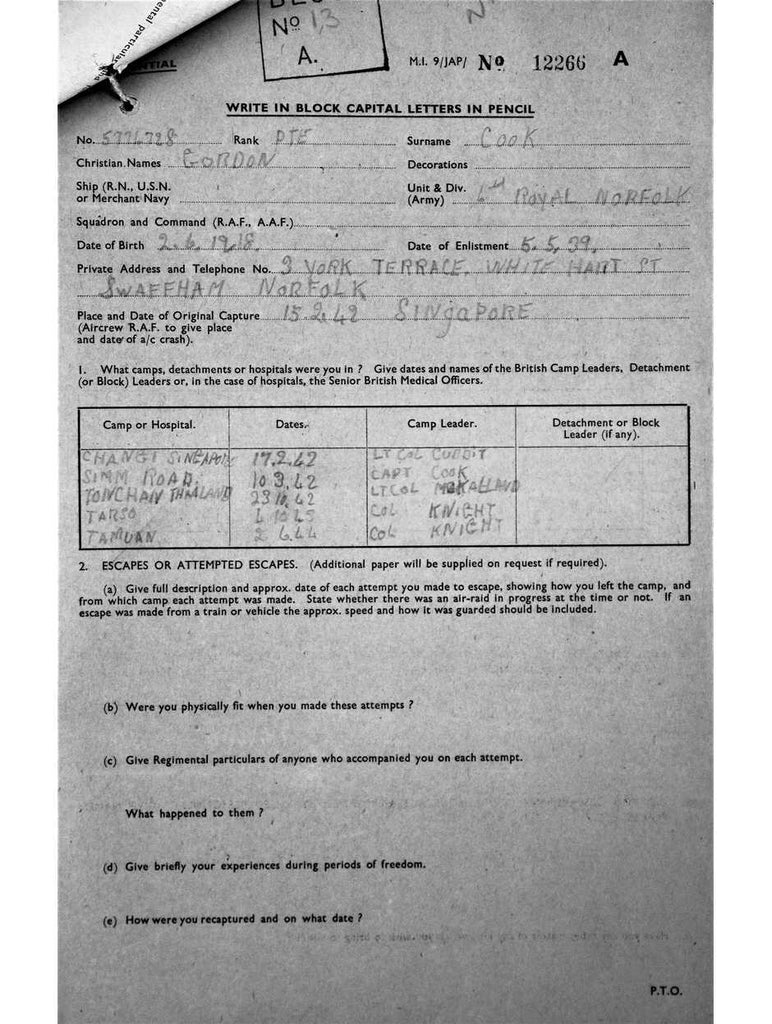 ental particular
No 13
A.
NTIAL
M.I. 9/JAP/ No 12266 A
WRITE IN BLOCK CAPITAL LETTERS IN PENCIL
No. 5776728 Rank PTE Surname COOK
Christian Names GORDON Decorations
Ship (R.N., U.S.N. or Merchant Navy Unit & Div. (Army) ROYAL NORFOLK
Squadron and Command (R.A.F., A.A.F.)
Date of Birth 2.6.1918. Date of Enlistment 5.5.39.
Private Address and Telephone No. 3 YORK TERRACE. WHITE HART ST
SWAFFHAM NORFOLK
Place and Date of Original Capture 15.2.42 SINGAPORE
(Aircrew R.A.F. to give place
and date of a/c crash).
1. What camps, detachments or hospitals were you in ? Give dates and names of the British Camp Leaders, Detachment
(or Block) Leaders or, in the case of hospitals, the Senior British Medical Officers.
Camp or Hospital. Dates. Camp Leader. Detachment or Block Leader (if any).
CHANGI SINGAPORE 17.2.42 LT COL CUBBIT
SIMM ROAD. 10.3.42 CAPT COOK
TONCHAN THAILAND 23.10.42 LT.COL
TARSO COL KNIGHT
TAMUAN 2.6.44 COL KNIGHT
2. ESCAPES OR ATTEMPTED ESCAPES. (Additional paper will be supplied on request if required).
(a) Give full description and approx. date of each attempt you made to escape, showing how you left the camp, and
from which camp each attempt was made. State whether there was an air-raid in progress at the time or not. If an
escape was made from a train or vehicle the approx. speed and how it was guarded should be included.
(b) Were you physically fit when you made these attempts ?
(c) Give Regimental particulars of anyone who accompanied you on each attempt.
What happened to them ?
(d) Give briefly your experiences during periods of freedom.
(e) How were you recaptured and on what date ?
P.T.O.